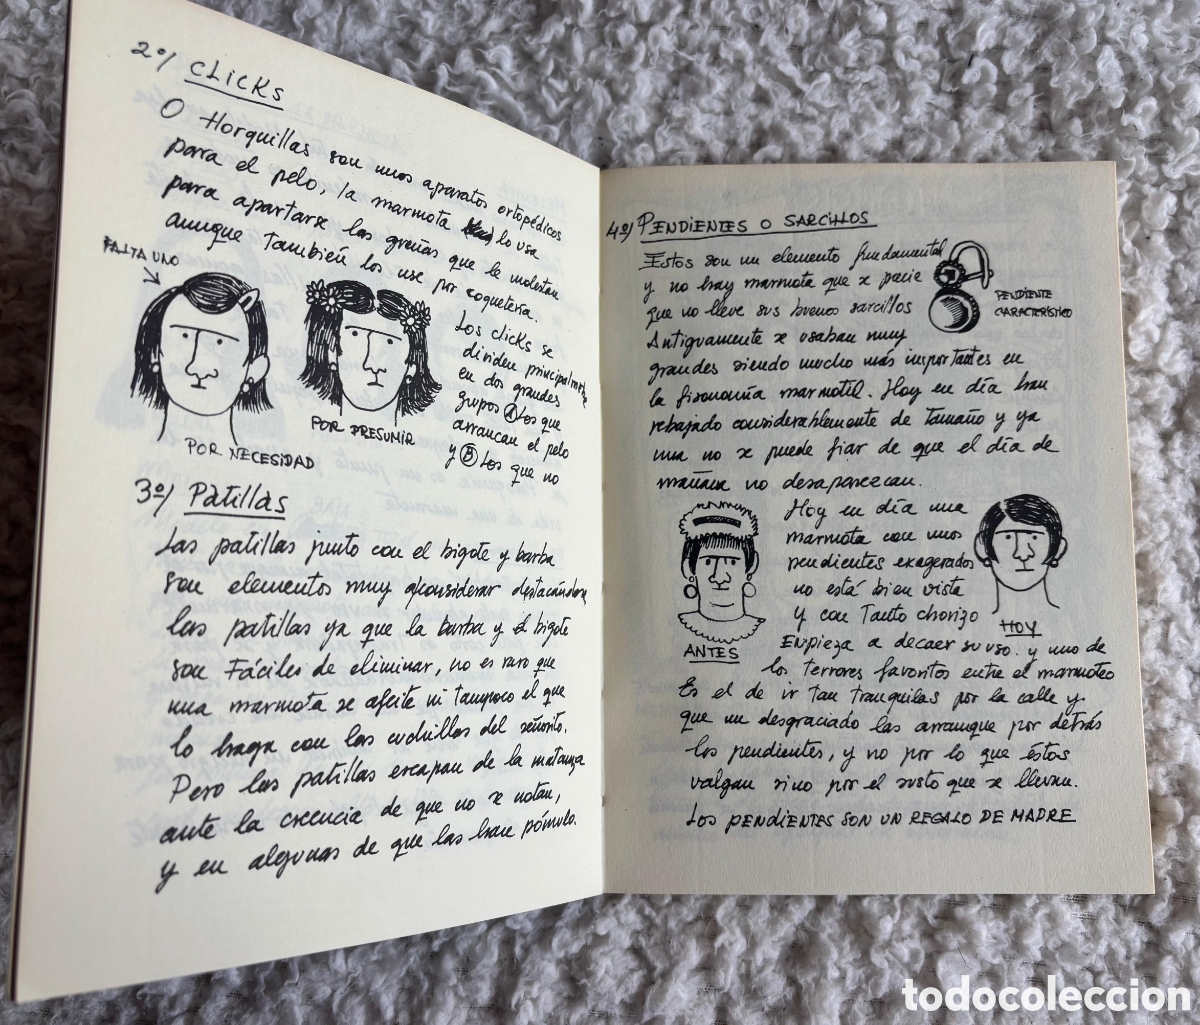 2º/ CLICKS
O Horquillas son unos aparatos ortopédicos
para el pelo, la marmota lo usa
para apartarse las greñas que le molestan
aunque también los use por coquetería.
FALTA UNO
Los clicks se
dividen principalmente
en dos grandes
grupos A Los que
arrancan el pelo
y B Los que no
POR NECESIDAD
POR PRESUMIR
3º/ Patillas
Las patillas junto con el bigote y barba
son elementos muy a considerar destacándose
las patillas ya que la barba y el bigote
son Fáciles de eliminar, no es raro que
una marmota se afeite ni tampoco el que
lo haga con las cuchillas del señorito.
Pero las patillas escapan de la matanza
ante la creencia de que no se notan,
y en algunas de que las han pómulo.
4º/ PENDIENTES O SARCILLOS
Estos son un elemento fundamental
y no hay marmota que se precie
que no lleve sus buenos sarcillos
PENDIENTE
CARACTERÍSTICO
Antiguamente se usaban muy
grandes siendo mucho más importantes en
la fisonomía marmotil. Hoy en día han
rebajado considerablemente de tamaño y ya
una no se puede fiar de que el día de
mañana no desaparezcan.
Hoy en día una
marmota con unos
pendientes exagerados
no está bien vista
y con Tanto chorizo
ANTES
HOY
Empieza a decaer su uso. y uno de
los terrores favoritos entre el marmoteo
Es el de ir tan tranquilas por la calle y
que un desgraciado las arranque por detrás
los pendientes, y no por lo que éstos
valgan sino por el susto que se llevan.
LOS PENDIENTES SON UN REGALO DE MADRE
todocoleccion